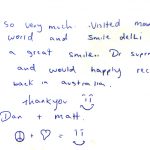 so very much. Visited mow
world and Smile delhi
a great smile. Dr supre
and would happily rec
back in australia.
thankyou
Dan + matt.
+ ♡ =